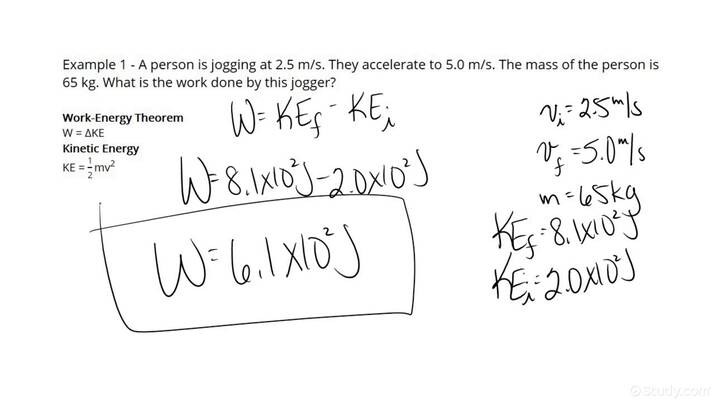 Example 1 - A person is jogging at 2.5 m/s. They accelerate to 5.0 m/s. The mass of the person is
65 kg. What is the work done by this jogger?
Work-Energy Theorem
W = ΔKE
Kinetic Energy
KE = 1/2 mv²
W = KE_f - KE_i
W = 8.1x10² J - 2.0x10² J
W = 6.1x10² J
v_i = 2.5 m/s
v_f = 5.0 m/s
m = 65 kg
KE_f = 8.1x10² J
KE_i = 2.0x10² J
Study.com